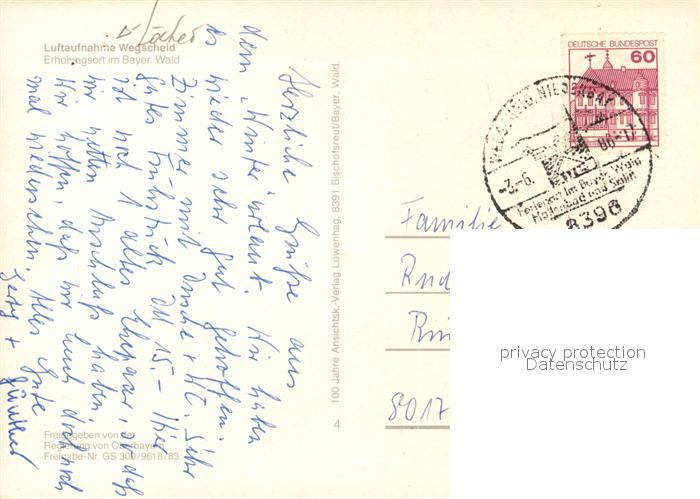 Löcher
Luftaufnahme Wegscheid
Erholungsort im Bayer. Wald
Herzliche Grüße aus
dem "Winter"urlaub. Wir haben
es wieder sehr gut getroffen.
Zimmer mit Dusche + WC. Sehr
gutes Frühstück DM 15.- Hier
ist noch 1 altes Ehepaar, so daß
wir netten Anschluß haben.
Wir hoffen, daß wir Euch doch noch
mal wiedersehen. Alles Gute
+ Günther
Freigegeben von der
Regierung von Oberbayern
Freigabe-Nr. GS 300/9618/83
100 Jahre Ansichtsk.-Verlag Löwenhag, 8391 Bischofsreut/Bayer. Wald.
4
DEUTSCHE BUNDESPOST
60
WEGSCHEID, NIEDERBAY
-9.-2. 86-17
Ferienort im Bayer. Wald
Hallenbad und Skilift
8396
Familie
8017
privacy protection
Datenschutz